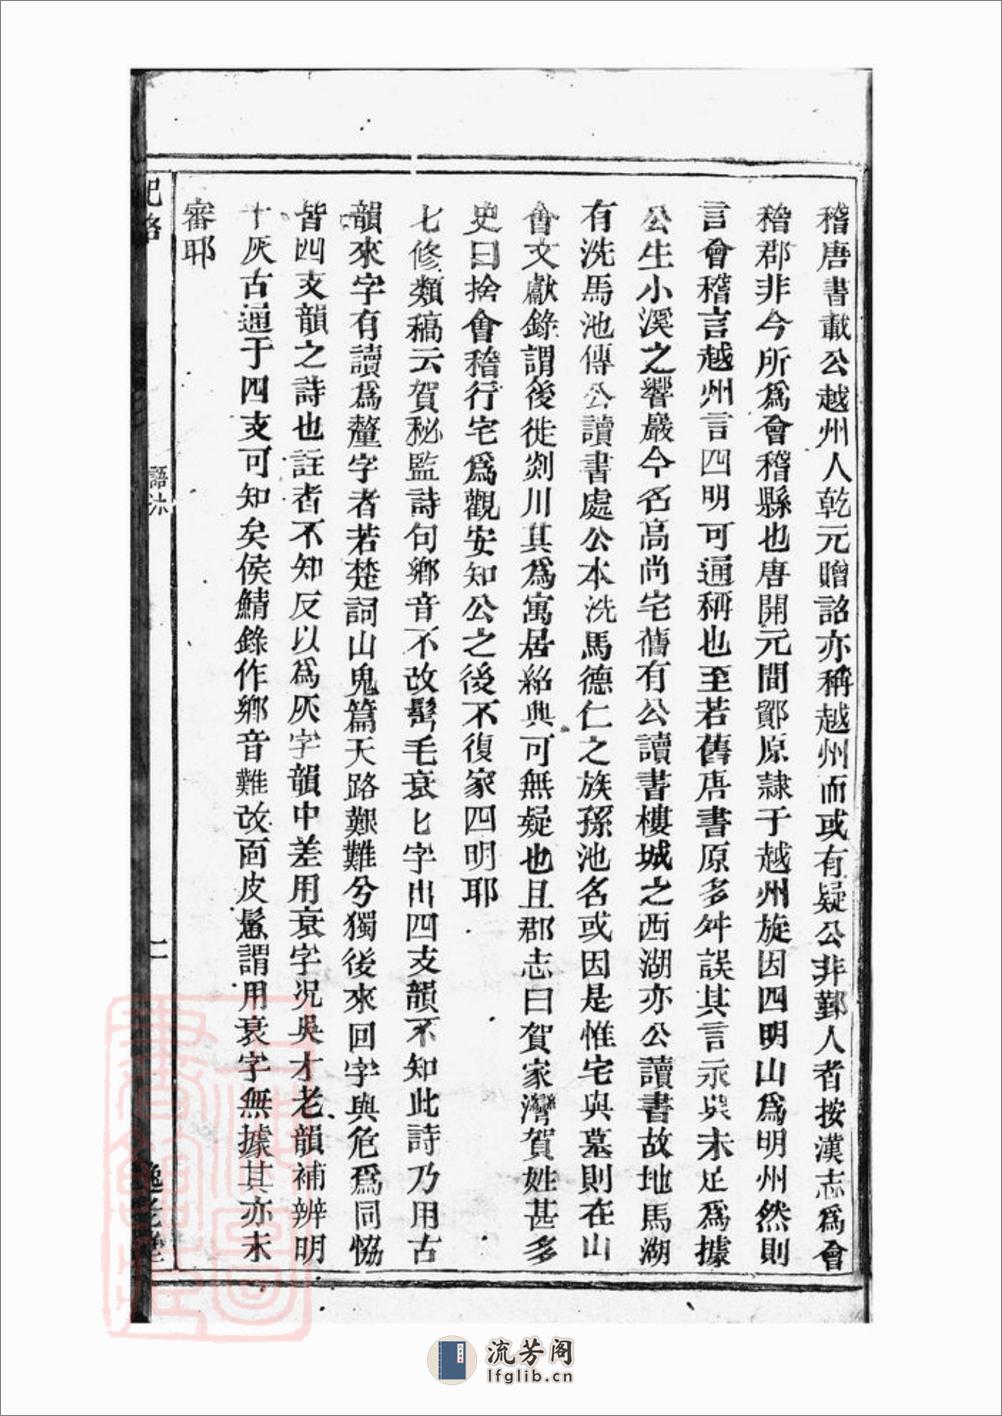 稽唐書載公越州人乾元贈詔亦稱越州而或有疑公非鄞人者按漢志爲會
稽郡非今所爲會稽縣也唐開元間鄮原隸于越州旋因四明山爲明州然則
言會稽言越州言四明可通稱也至若舊唐書原多舛誤其言永興未足爲據
公生小溪之響巖今名高尚宅舊有公讀書樓城之西湖亦公讀書故地馬湖
有洗馬池傳公讀書處公本洗馬德仁之族孫池名或因是惟宅與墓則在山
會文獻錄謂後徙剡川其爲寓居紹興可無疑也且郡志曰賀家灣賀姓甚多
史曰捨會稽行宅爲觀安知公之後不復家四明耶
七修類稿云賀秘監詩句鄉音不改鬢毛衰匕字出四支韻不知此詩乃用古
韻來字有讀爲釐字者若楚詞山鬼篇天路艱難兮獨後來回字與危爲同恊
皆四支韻之詩也註者不知反以爲灰字韻中差用衰字況吳才老韻補辨明
十灰古通于四支可知矣侯鯖錄作鄉音難改面皮䰄謂用衰字無據其亦未
審耶
語汴
二
逸老堂
古博圖
書館藏
流芳阁
lfglib.cn